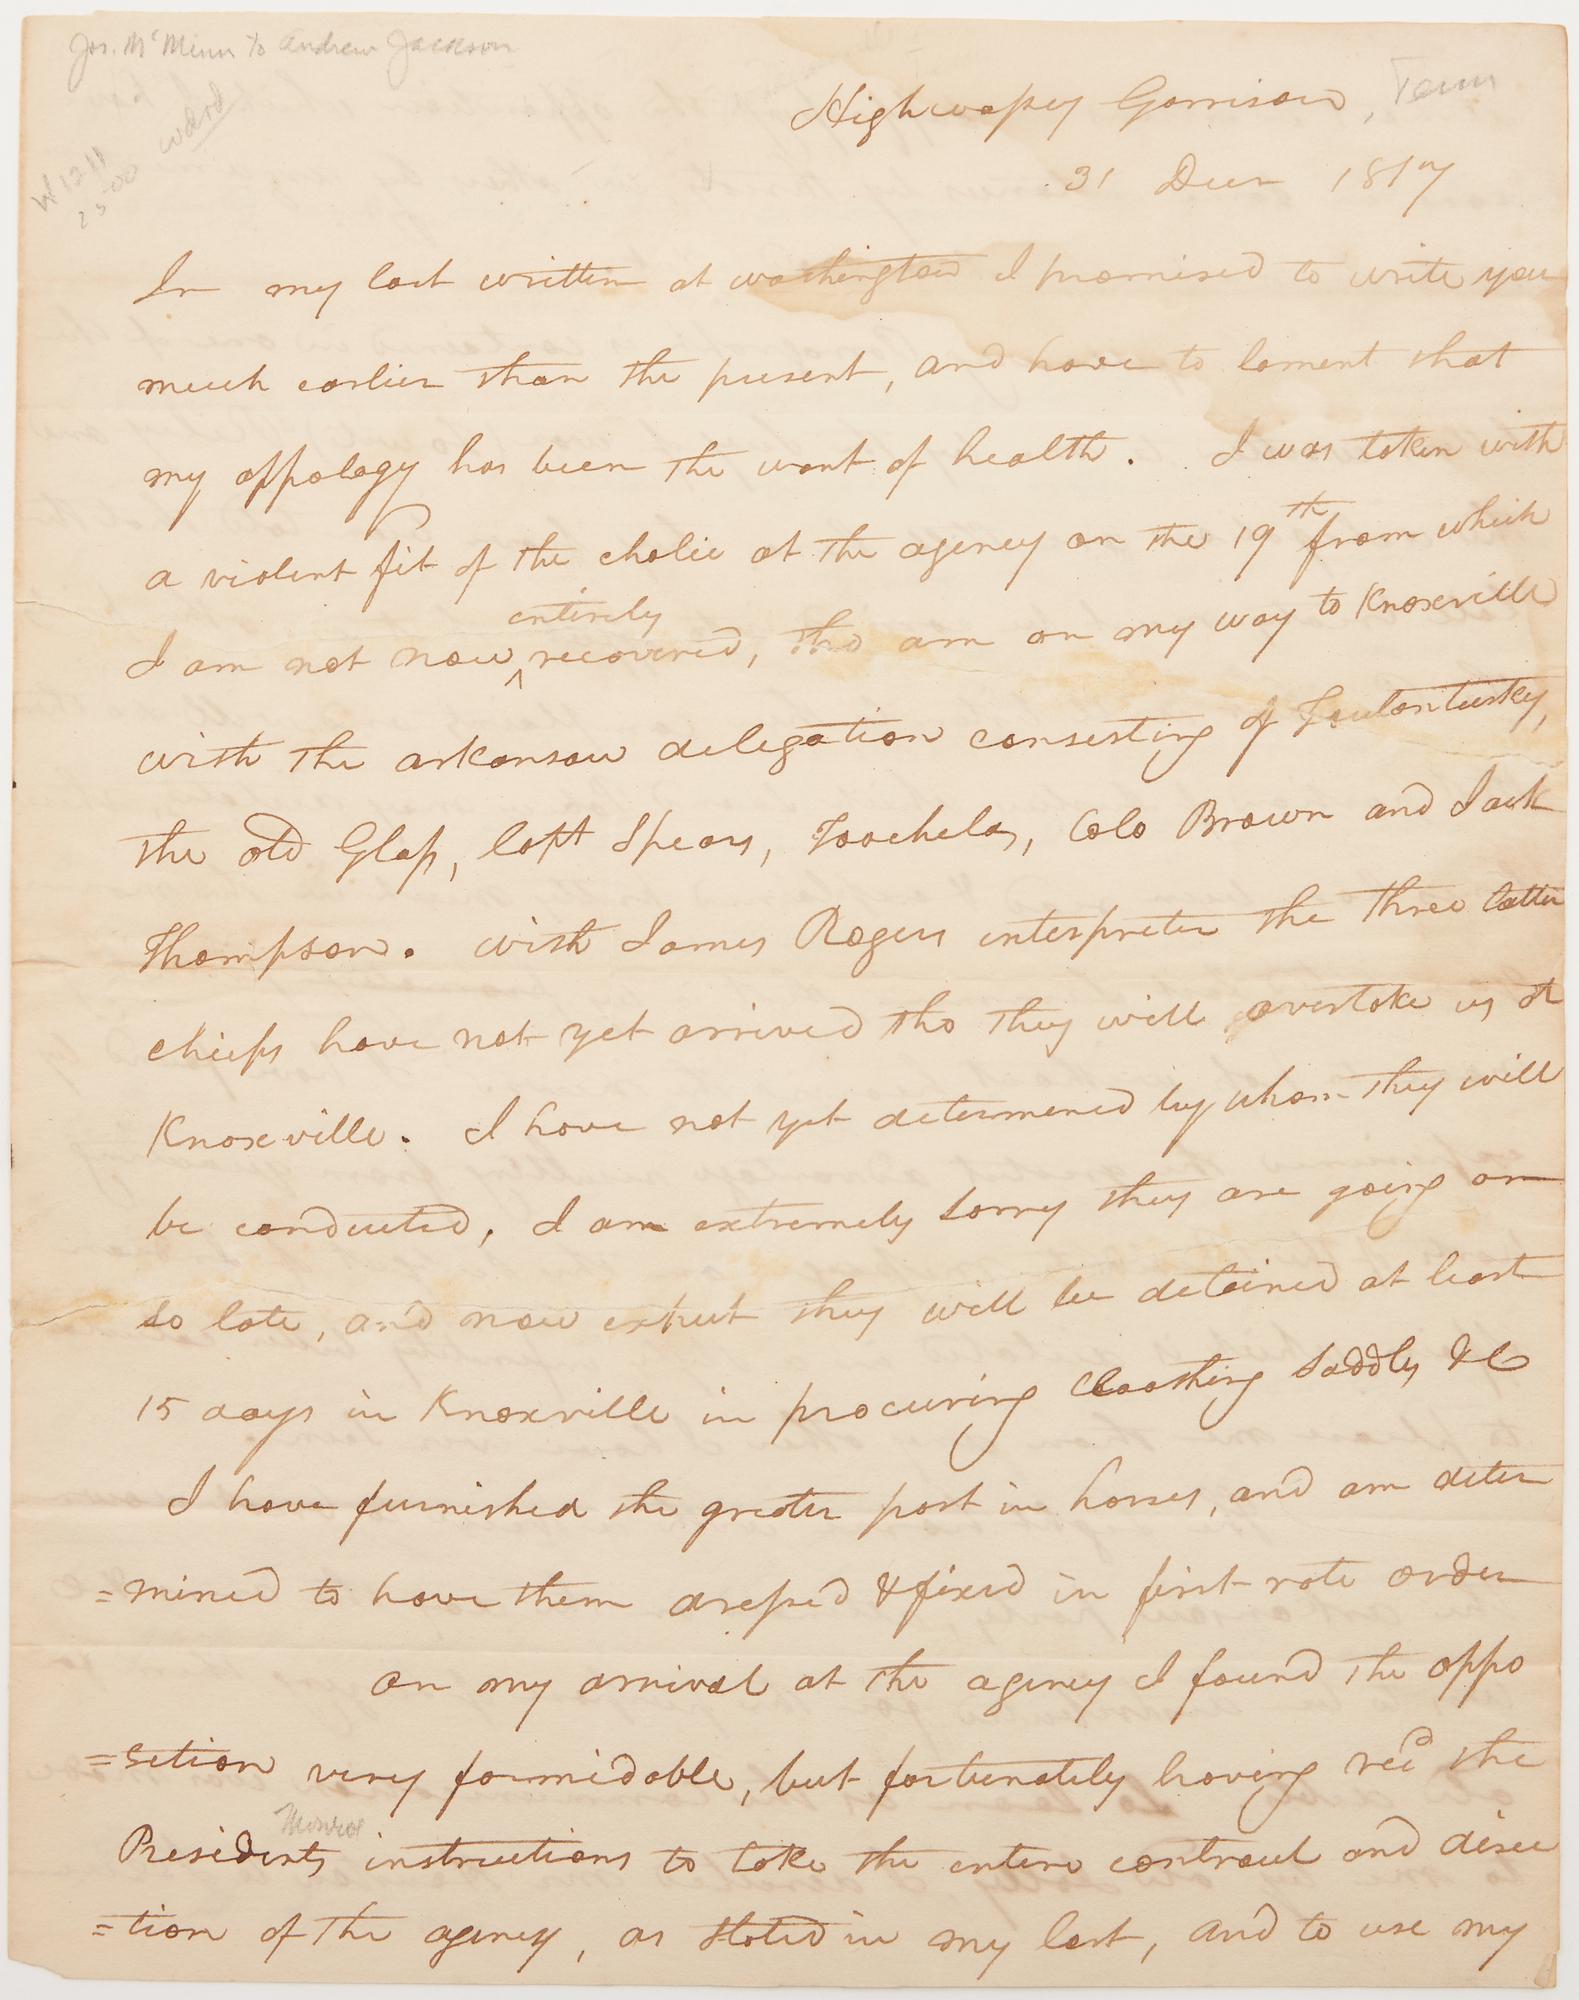 Jos. McMinn to Andrew Jackson
ward
W 1211
2500
Highwassey Garrison, Tenn
31 Decr 1817
In my last written at washington I promised to write you
much earlier than the present, and have to lament that
my appology has been the want of health. I was taken with
a violent fit of the cholic at the agency on the 19th from which
entirely
I am not now ^ recovered, tho am on my way to Knoxville
with the arkansaw delegation consesting of Toulontusky,
the old Glass, Capt Spears, Toochelar, Colo Brown and Jack
Thompson. with James Rogers interpreter the three latter
chiefs have not yet arrived tho they will overtake us at
Knoxville. I have not yet determened by whom they will
be conducted, I am extremely sorry they are going on
so late, and now expect they will be detained at least
15 days in Knoxville in procuring Cloathing Saddls &C
I have furnished the greater part in horses, and am deter
=mined to have them dressed & fixed in first rate order
on my arrival at the agency I found the oppo
=setion very formidable, but fortunately having recd the
Monroe
Presidents instructions to take the entire controul and direc
=tion of the agency, as stated in my last, and to use my